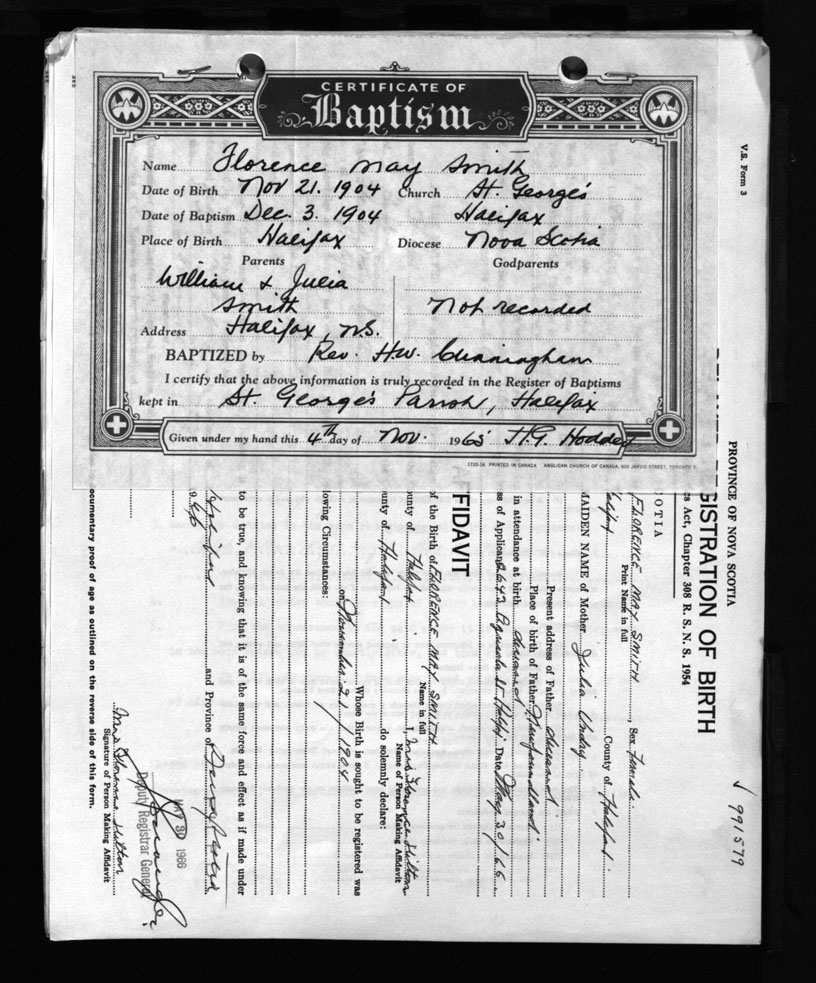 CERTIFICATE OF
Baptism
Name Florence May Smith
Date of Birth Nov 21. 1904 Church St. George's
Date of Baptism Dec. 3. 1904 Halifax
Place of Birth Halifax Diocese Nova Scotia
Parents Godparents
William & Julia
Smith Not recorded
Address Halifax, N.S.
BAPTIZED by Rev. H.W. Cunningham
I certify that the above information is truly recorded in the Register of Baptisms
kept in St. George's Parish, Halifax
Given under my hand this 4th day of Nov. 1965
1720-16 PRINTED IN CANADA ANGLICAN CHURCH OF CANADA, 600 JARVIS STREET, TORONTO 5
V.S. Form 3
991579
PROVINCE OF NOVA SCOTIA
GISTRATION OF BIRTH
s Act, Chapter 308 R. S. N. S. 1954
OTIA
FLORENCE MAY SMITH, Sex Female
Print Name in full
Halifax County of Halifax
MAIDEN NAME of Mother Julia
Present address of Father deceased
Place of birth of Father Newfoundland
in attendance at birth deceased
ss of Applicant 2643 Agricola St Date May 30/66
FIDAVIT
of the Birth of FLORENCE MAY SMITH
Name in full
ounty of Halifax I, Mrs Florence Hutton
Name of Person Making Affidavit
ounty of Halifax do solemnly declare:
Whose Birth is sought to be registered was
on November 21/1904
lowing Circumstances:
to be true, and knowing that it is of the same force and effect as if made under
Halifax and Province of Nova Scotia
19 66
MAY 30 1966
Deputy Registrar General
Mrs Florence Hutton
Signature of Person Making Affidavit
ocumentary proof of age as outlined on the reverse side of this form.